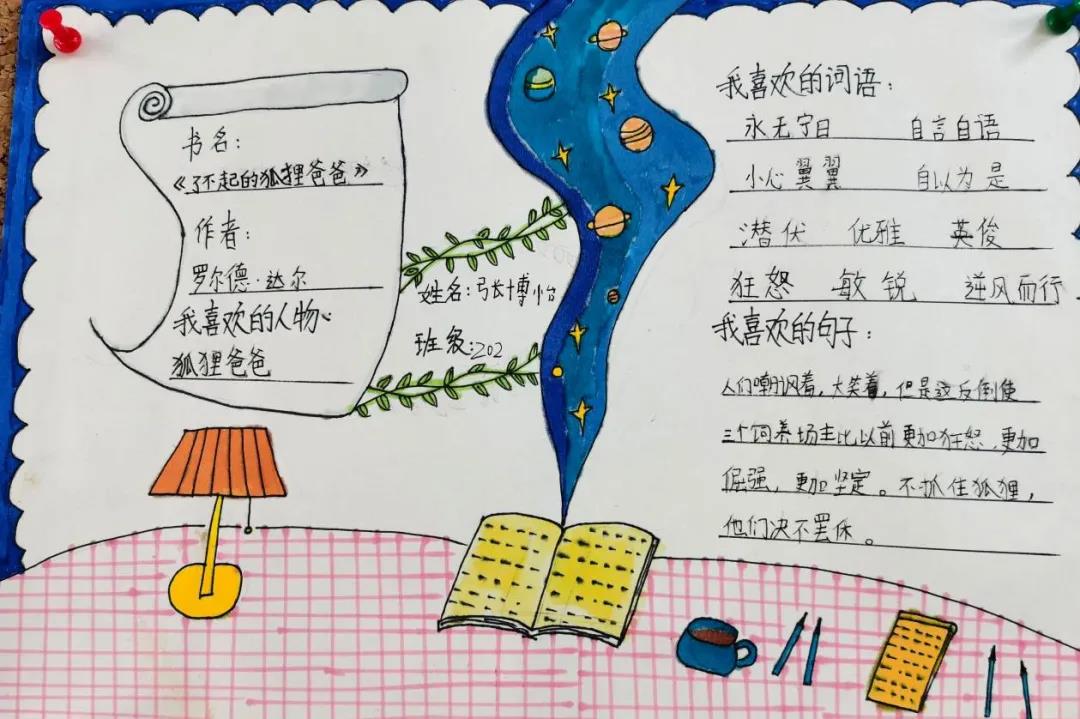 书名：
《了不起的狐狸爸爸》
作者：
罗尔德·达尔
我喜欢的人物：
狐狸爸爸
姓名：张博怡
班级：202
我喜欢的词语：
永无宁日 自言自语
小心翼翼 自以为是
潜伏 优雅 英俊
狂怒 敏锐 逆风而行
我喜欢的句子：
人们嘲讽着，大笑着，但是这反倒使
三个饲养场主比以前更加狂怒，更加
倔强，更加坚定。不抓住狐狸，
他们决不罢休。